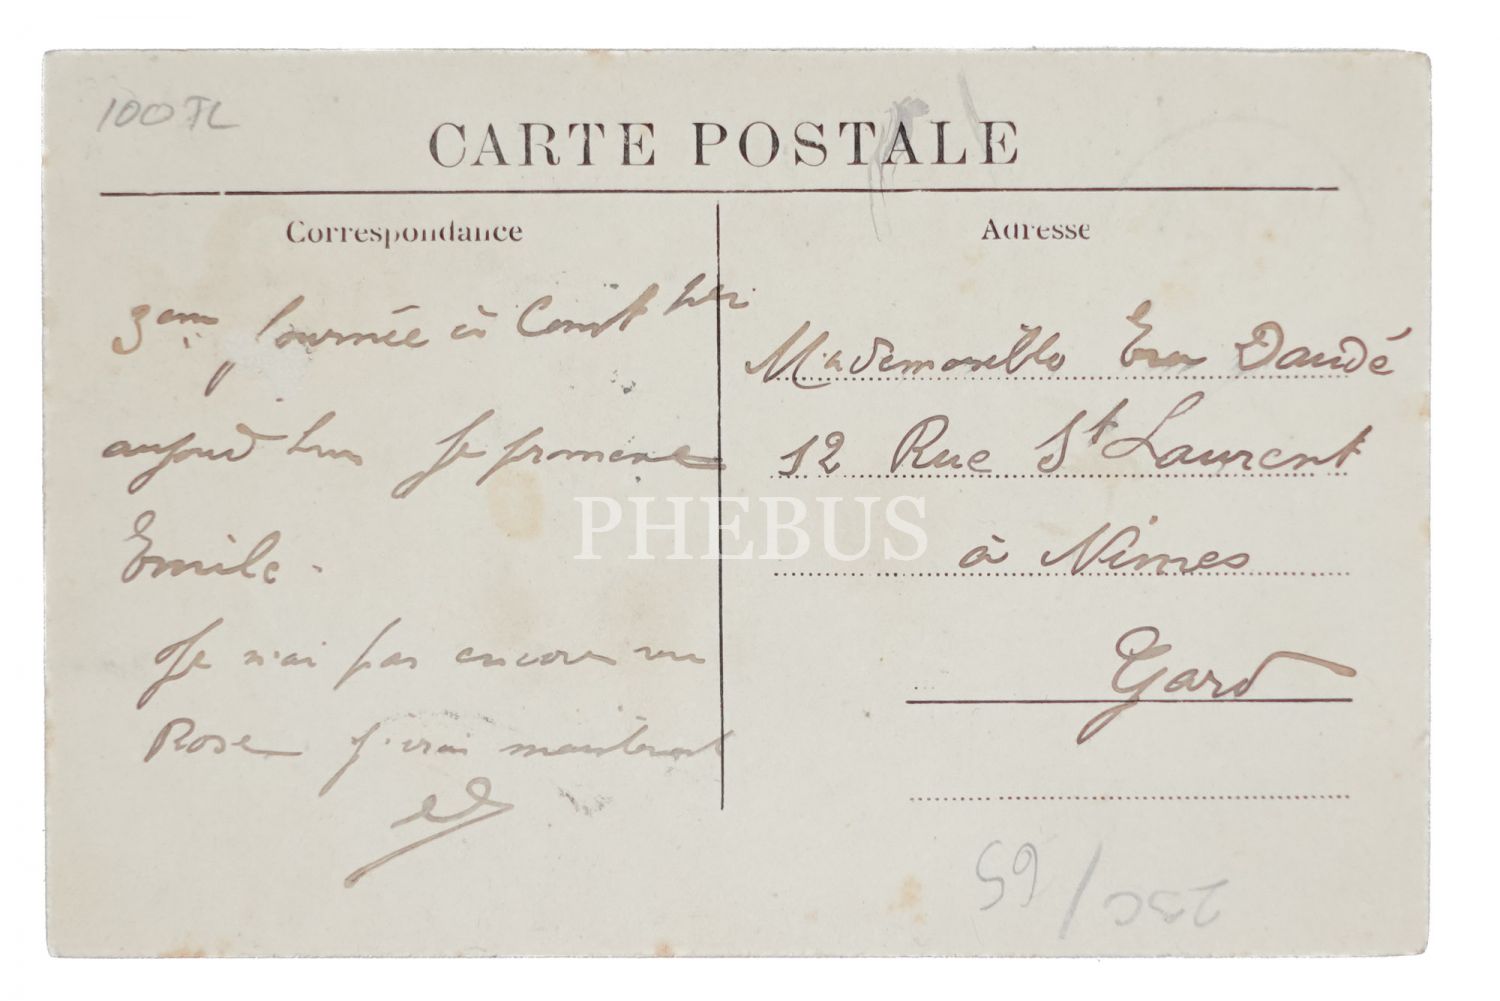 100 TL
CARTE POSTALE
Correspondance
Adresse
3eme journée à Const hier
aujourd'hui je promene
Emile.
Je n'ai pas encore vu
Rose j'irai maintenant
Mademoiselle Eva Daudé
12 Rue St Laurent
à Nimes
Gard
PHEBUS